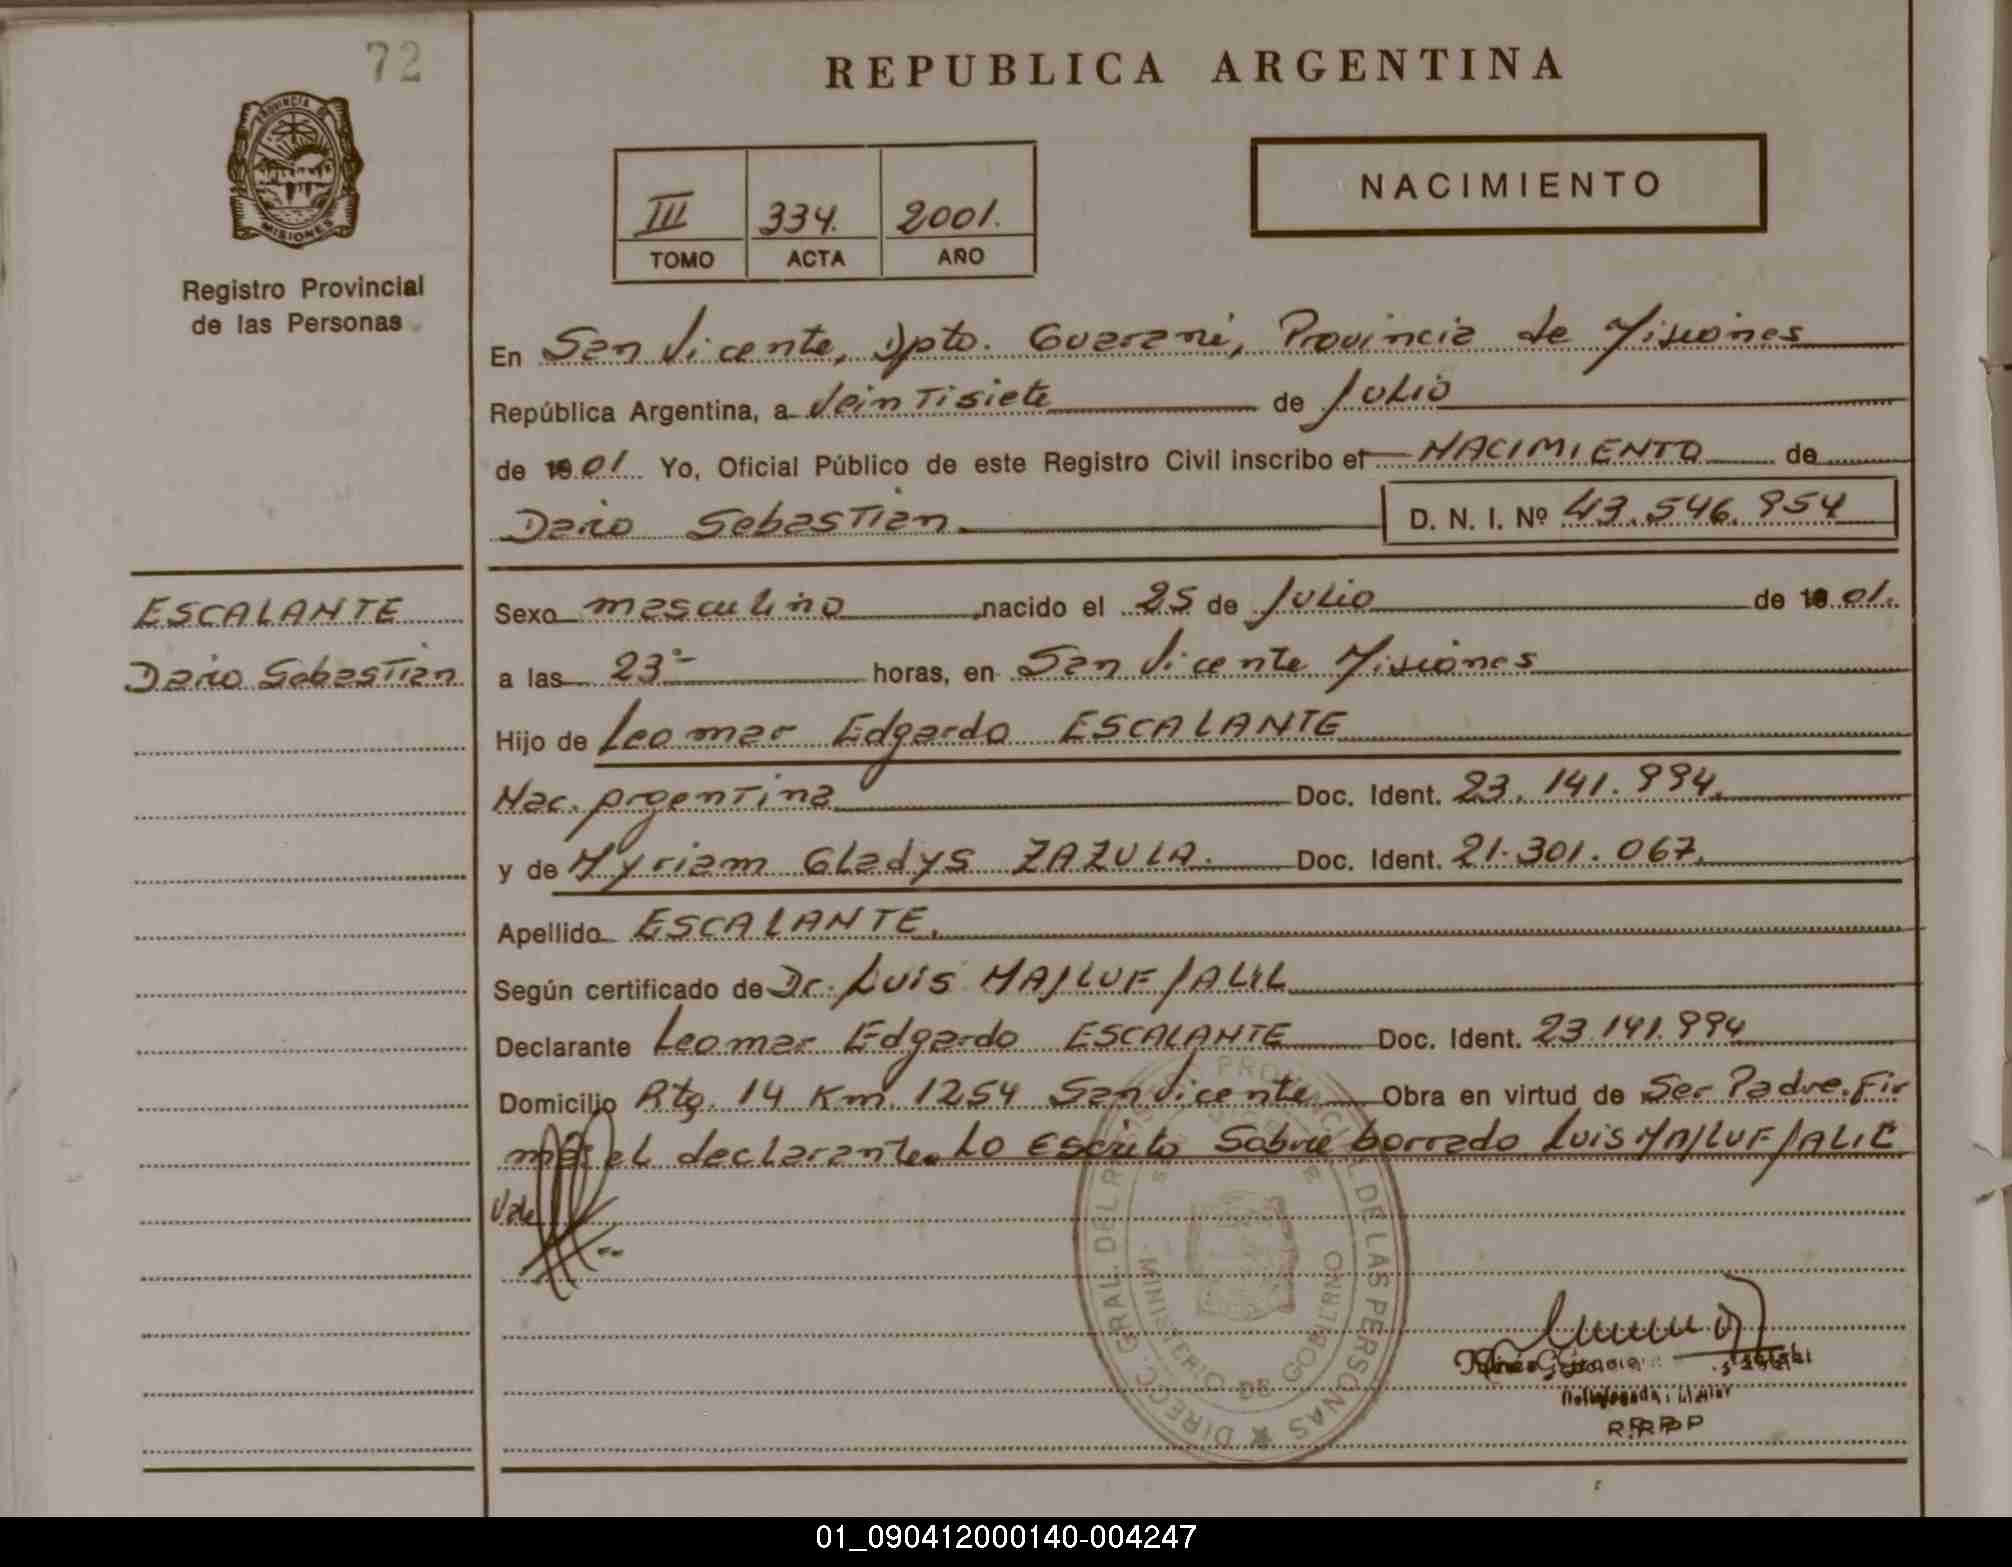 72
REPUBLICA ARGENTINA
PROVINCIA DE
MISIONES
Registro Provincial
de las Personas
III 334. 2001.
TOMO ACTA AÑO
NACIMIENTO
En San Vicente, Dpto. Guaraní, Provincia de Misiones
República Argentina, a Veintisiete de Julio
de 01 Yo, Oficial Público de este Registro Civil inscribo el NACIMIENTO de
Dario Sebastian D. N. I. Nº 43.546.954
ESCALANTE
Dario Sebastian
Sexo masculino nacido el 25 de Julio de 01.
a las 23 horas, en San Vicente Misiones
Hijo de Leomar Edgardo ESCALANTE
Nac. Argentina Doc. Ident. 23.141.994.
y de Myriam Gladys ZAZULA. Doc. Ident. 21.301.067.
Apellido ESCALANTE.
Según certificado de Dr. Luis MAJLUF JALIL
Declarante Leomar Edgardo ESCALANTE Doc. Ident. 23.141.994
Domicilio Rta. 14 Km. 1254 San Vicente Obra en virtud de Ser Padre. Fir
ma el declarante. Lo Escrito Sobre borrado Luis MAJLUF JALIL
Vale
DIRECC. GRAL. DEL PROVINCIAL DE LAS PERSONAS
MINISTERIO DE GOBIERNO
01_090412000140-004247